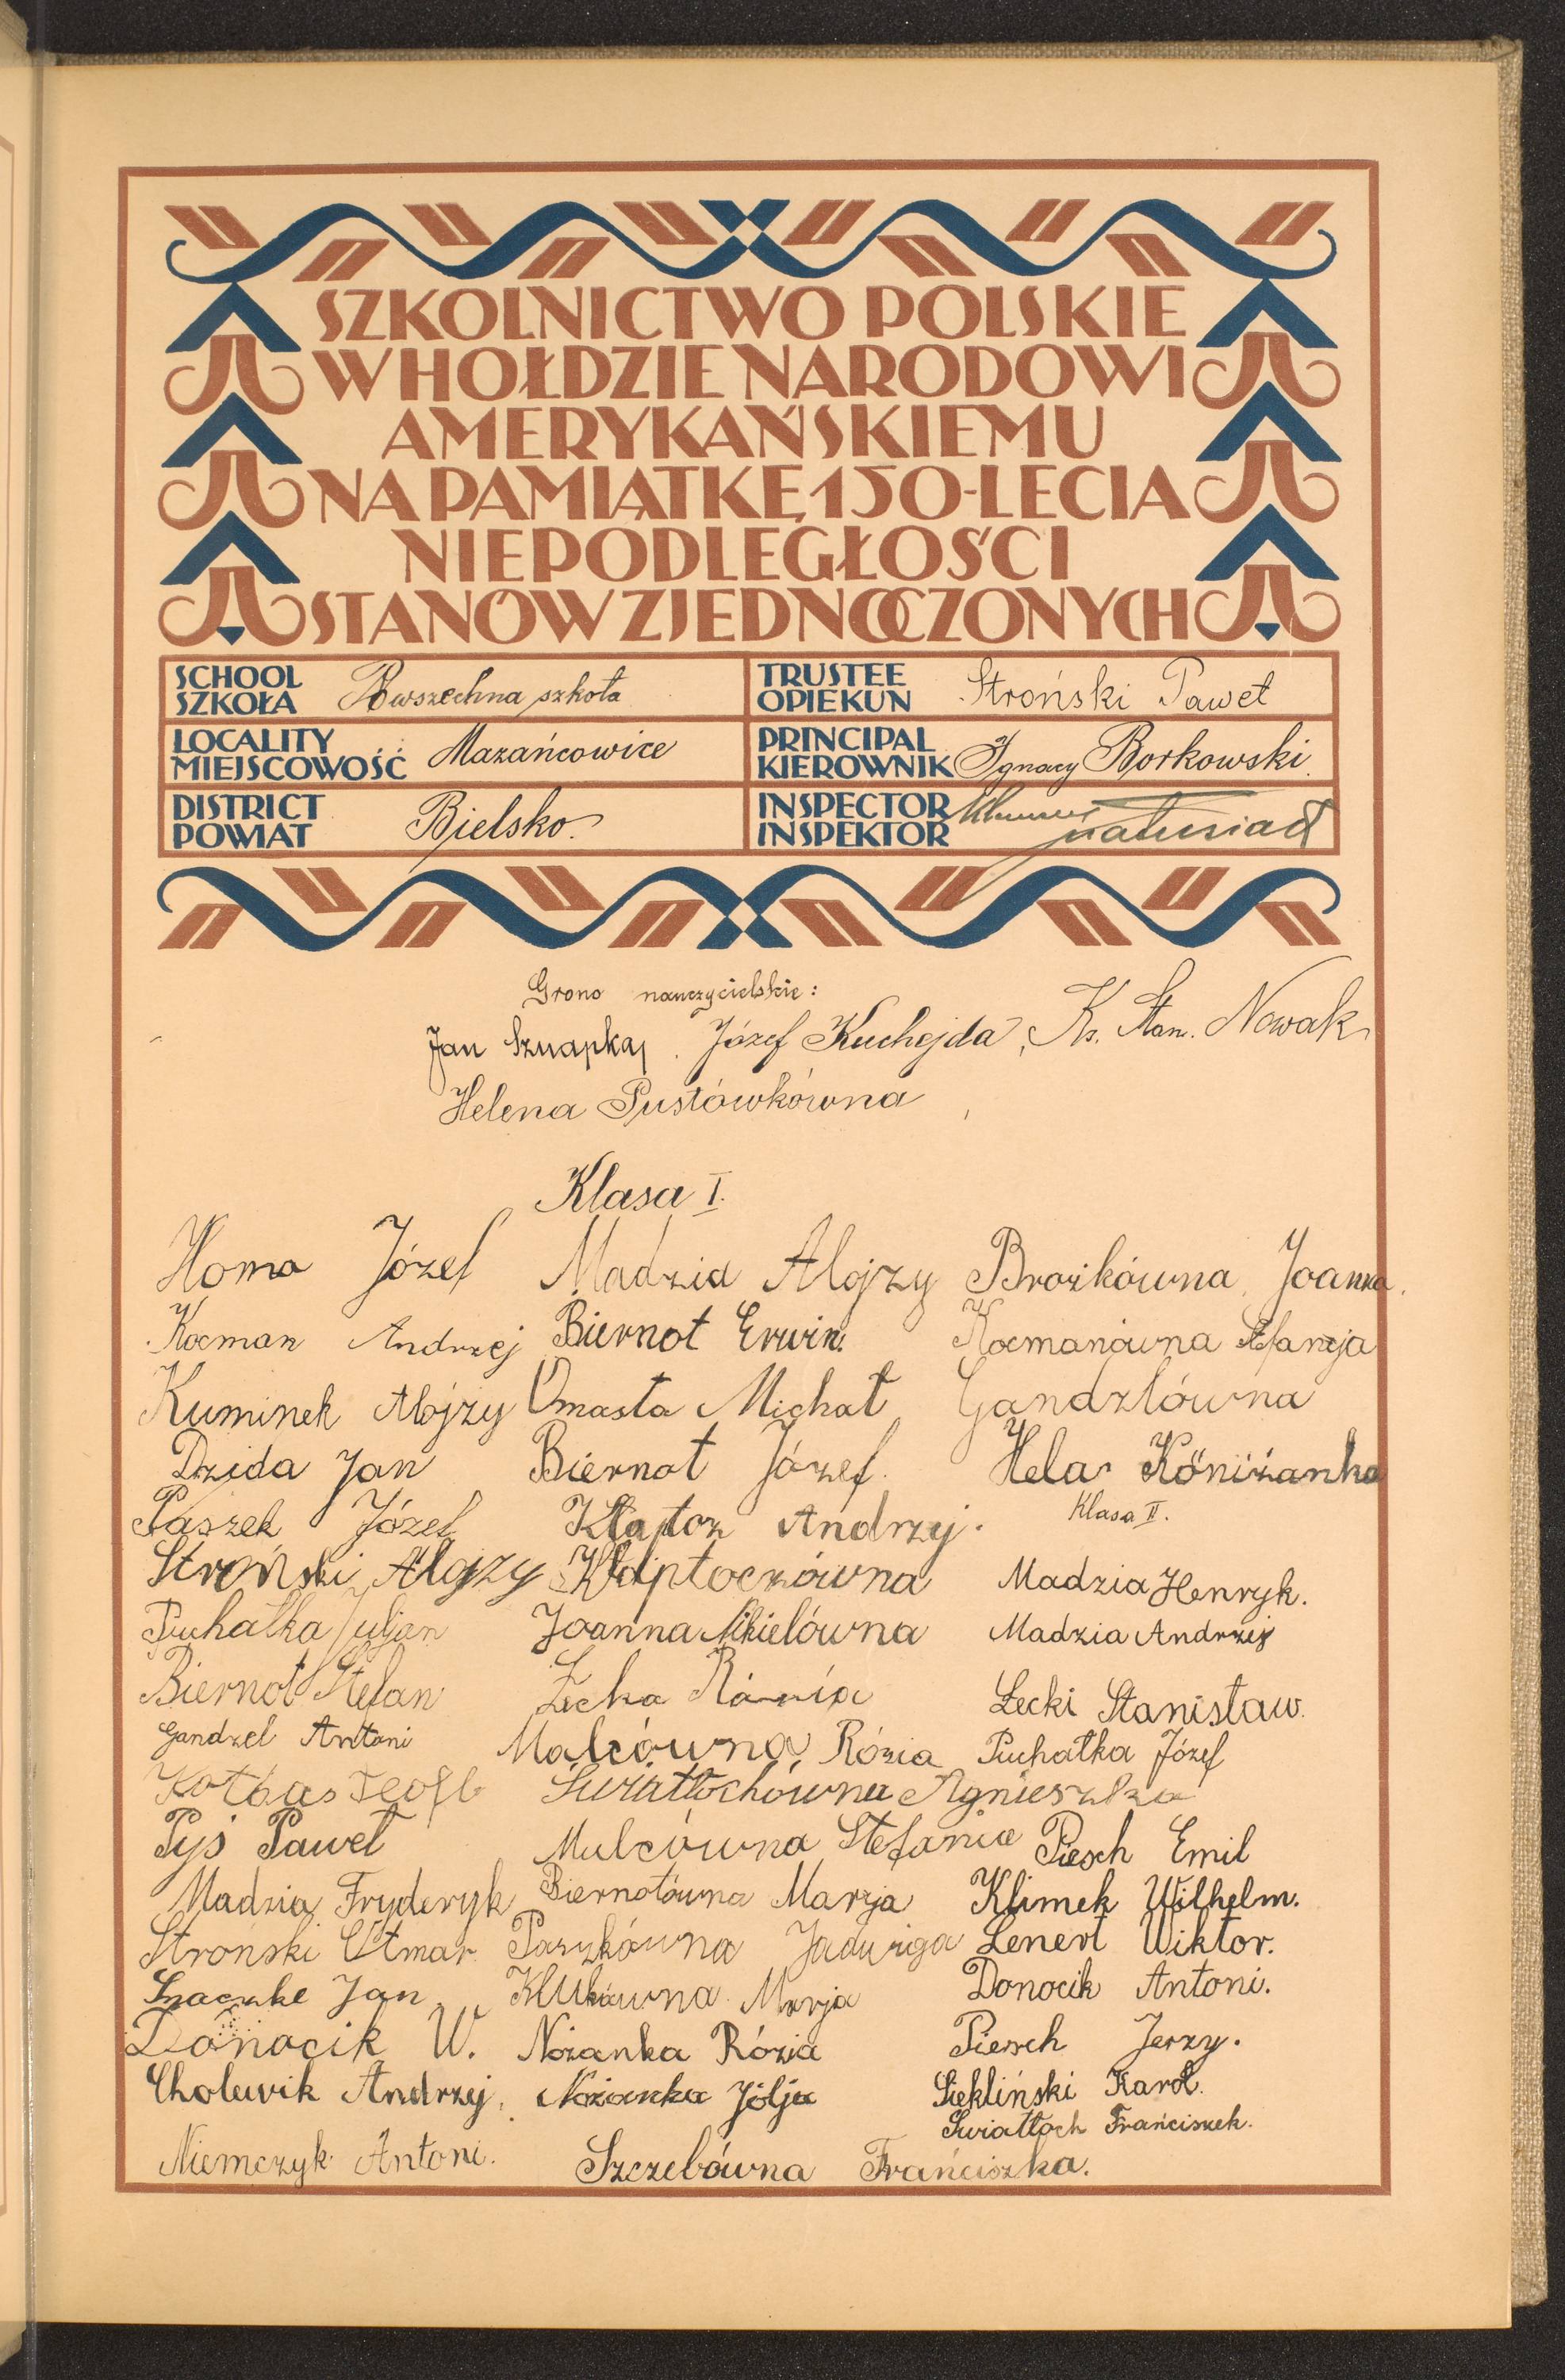 SZKOLNICTWO POLSKIE
W HOŁDZIE NARODOWI
AMERYKAŃSKIEMU
NA PAMIĄTKĘ 150-LECIA
NIEPODLEGŁOŚCI
STANÓW ZJEDNOCZONYCH
SCHOOL
SZKOŁA Powszechna szkoła
TRUSTEE
OPIEKUN Stroński Paweł
LOCALITY
MIEJSCOWOŚĆ Mazańcowice
PRINCIPAL
KIEROWNIK Ignacy Borkowski
DISTRICT
POWIAT Bielsko.
INSPECTOR
INSPEKTOR Matusiak
Grono nauczycielskie:
Jan Sznapka, Józef Kuchejda, Ks. Stan. Nowak
Helena Pustówkówna
Klasa I.
Homa Józef
Kocman Andrzej
Kuminek Alojzy
Dzida Jan
Paszek Józef
Stroński Alojzy
Puchałka Juljan
Biernot Stefan
Gandzel Antoni
Kotbas Teofl
Pyś Paweł
Madzia Fryderyk
Stroński Otmar
Jan
Donocik W.
Cholewik Andrzej,
Niemczyk Antoni.
Madzia Alojzy
Biernot Erwin.
Omasta Michał
Biernot Józef.
Kłaptoz Andrzj.
Kłaptoczówna
Joanna Nikielówna
Łecka Rózia
Malcówna Rózia
Światłochówna Agnieszka
Malcówna Stefania
Biernotówna Marja
Paszkówna Jadwiga
Klukówna Marja
Nożanka Rózia
Nożanka Jólja
Szczebówna Frańciszka.
Brozikówna Joanna.
Kocmanówna Stefanja
Gandzlówna
Hela Köniżanka
Klasa II.
Madzia Henryk.
Madzia Andrzej
Łecki Stanisław.
Puchałka Józef
Piesch Emil
Klimek Wilhelm.
Lenert Wiktor.
Donocik Antoni.
Piesch Jerzy.
Siekliński Karol.
Swiatłoch Frańciszek.